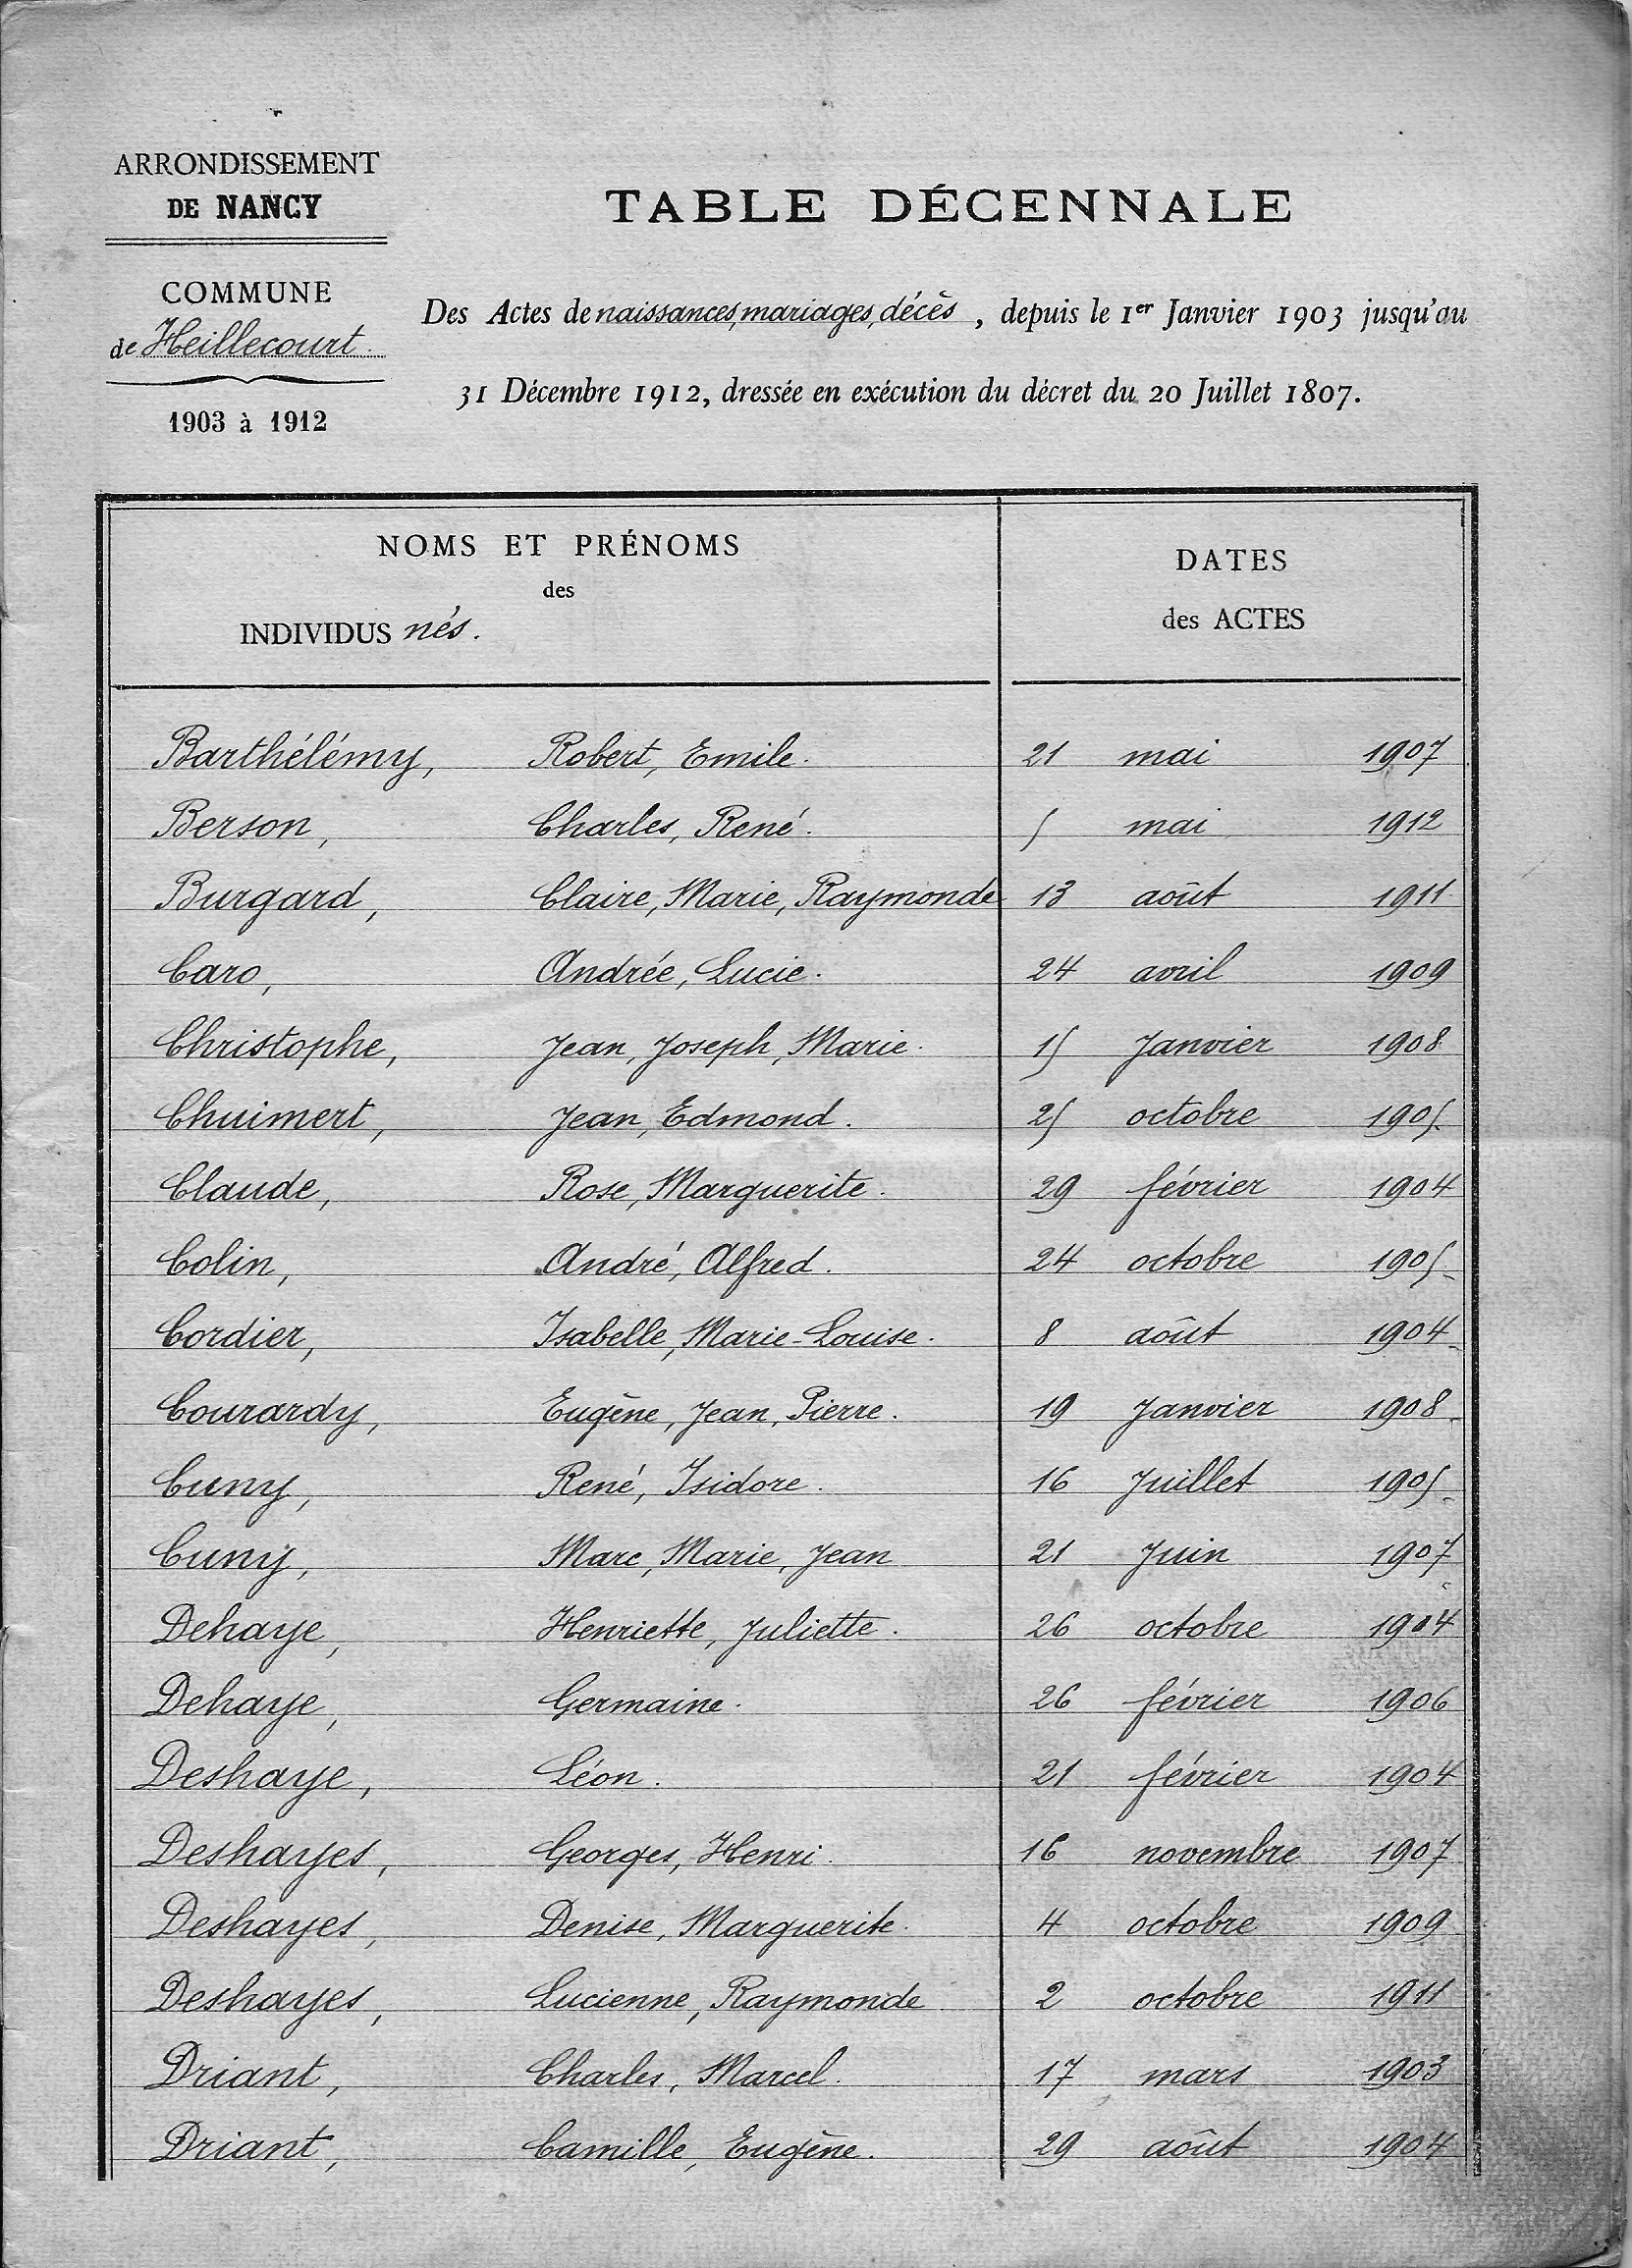 ARRONDISSEMENT
DE NANCY
COMMUNE
de Heillecourt.
1903 à 1912
TABLE DÉCENNALE
Des Actes de naissances, mariages, décès, depuis le 1er Janvier 1903 jusqu'au
31 Décembre 1912, dressée en exécution du décret du 20 Juillet 1807.
NOMS ET PRÉNOMS
des
INDIVIDUS nés.
DATES
des ACTES
Barthélémy, Robert, Emile. 21 mai 1907
Berson, Charles, René. 5 mai 1912
Burgard, Claire, Marie, Raymonde 13 août 1911
Caro, Andrée, Lucie. 24 avril 1909
Christophe, Jean, Joseph, Marie. 15 Janvier 1908
Chuimert, Jean, Edmond. 25 octobre 1905.
Claude, Rose, Marguerite. 29 février 1904
Colin, André, Alfred. 24 octobre 1905
Cordier, Isabelle, Marie-Louise. 8 août 1904
Courardy, Eugène, Jean, Pierre. 19 Janvier 1908
Cuny, René, Isidore. 16 Juillet 1905
Cuny, Marc, Marie, Jean 21 Juin 1907
Dehaye, Henriette, Juliette. 26 octobre 1904
Dehaye, Germaine. 26 février 1906
Deshaye, Léon. 21 février 1904
Deshayes, Georges, Henri. 16 novembre 1907
Deshayes, Denise, Marguerite. 4 octobre 1909
Deshayes, Lucienne, Raymonde 2 octobre 1911
Driant, Charles, Marcel. 17 mars 1903
Driant, Camille, Eugène. 29 août 1904